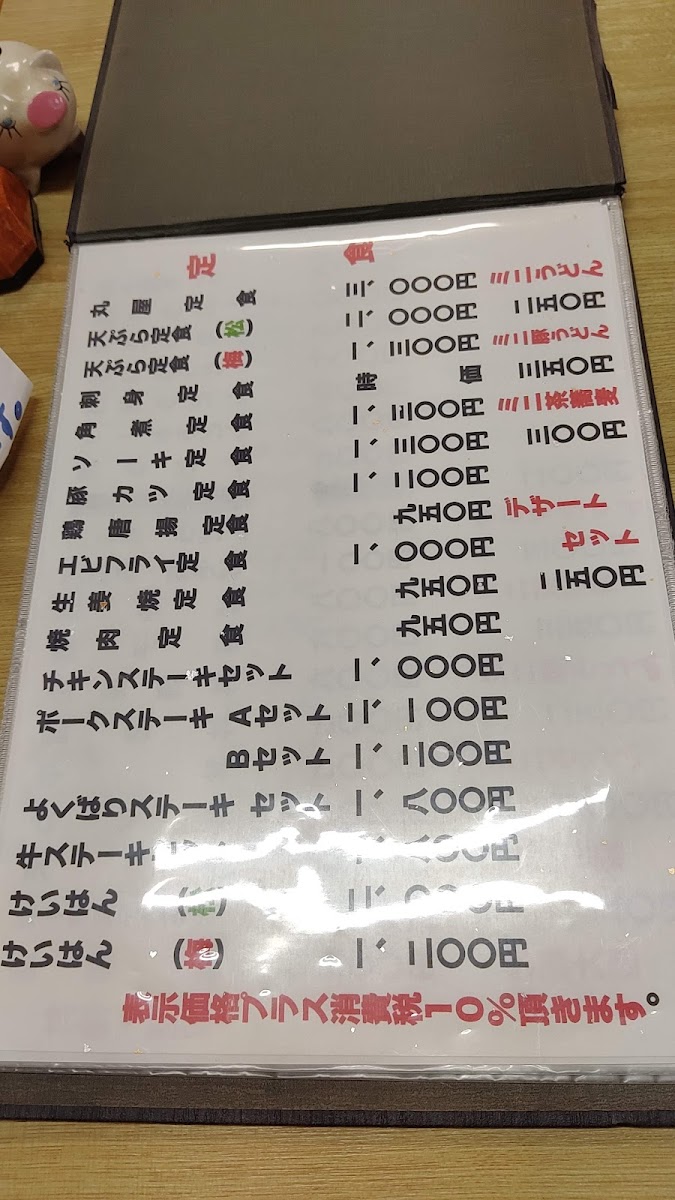 定食
丸屋定食 三、〇〇〇円
天ぷら定食(松) 二、〇〇〇円
天ぷら定食(梅) 一、三〇〇円
刺身定食 時価
角煮定食 一、三〇〇円
ソーキ定食 一、三〇〇円
豚カツ定食 一、二〇〇円
鶏唐揚定食 九五〇円
エビフライ定食 一、〇〇〇円
生姜焼定食 九五〇円
焼肉定食 九五〇円
チキンステーキセット 一、〇〇〇円
ポークステーキ Aセット 二、一〇〇円
Bセット 一、二〇〇円
よくばりステーキ セット 一、八〇〇円
牛ステーキ
けいはん (松)
けいはん (梅) 一、二〇〇円
表示価格プラス消費税10%頂きます。
ミニうどん
二五〇円
ミニ豚うどん
三五〇円
ミニ茶蕎麦
三〇〇円
デザート
セット
二五〇円